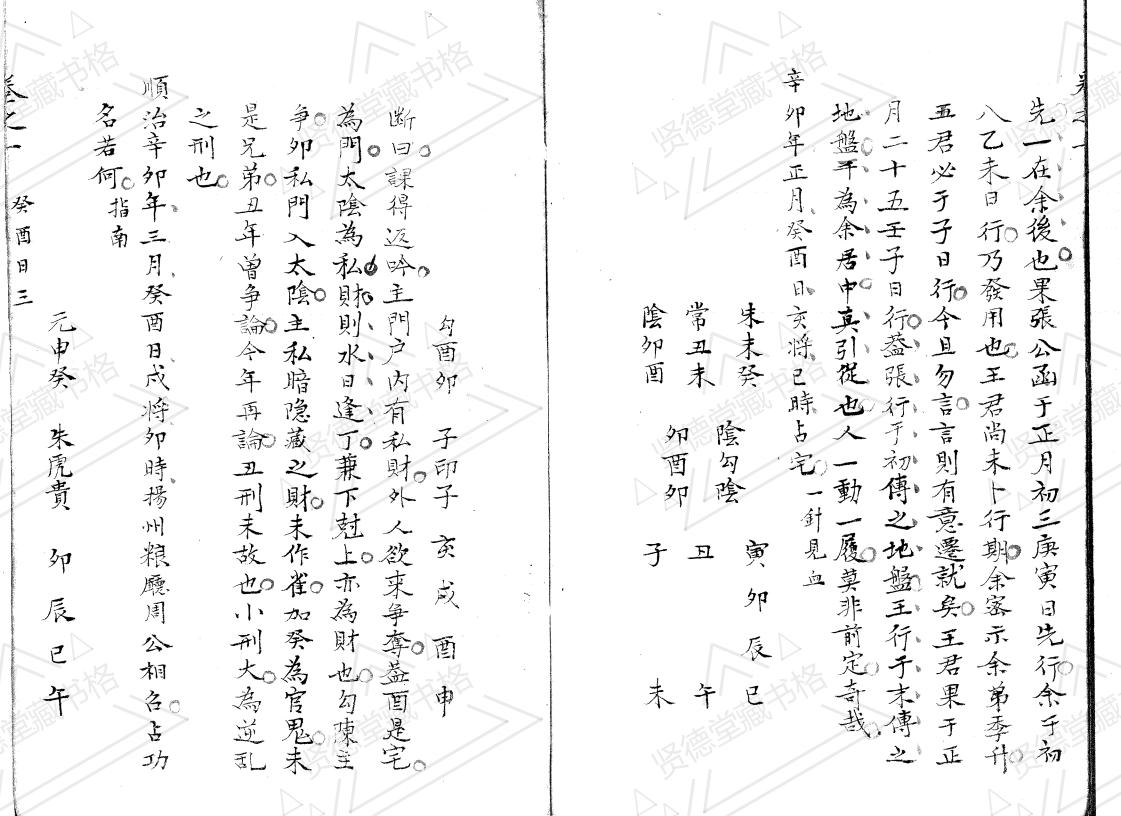 卷之一
先一在余後也果張公函于正月初三庚寅日先行余于初
八乙未日行乃發用也王君尚未卜行期余密示余弟季升
五君必于子日行今且勿言言則有意遷就矣王君果于正
月二十五壬子日行蓋張行于初傳之地盤王行于末傳之
地盤平為余居中真引從也人一動一履莫非前定奇哉
辛卯年正月癸酉日亥將巳時占宅 一針見血
朱未癸 陰勾陰 寅卯辰巳
常丑未 卯酉卯 丑 午
陰卯酉 子 未
勾酉卯 子卯子 亥戌酉申
斷曰課得返吟主門户內有私財外人欲來爭奪蓋酉是宅
為門太陰為私財則水日逢丁兼下尅上亦為財也勾陳主
爭卯私門入太陰主私暗隐藏之財未作雀加癸為官鬼未
是兄弟丑年曾爭論今年再論丑刑未故也小刑大為逆乱
之刑也
順治辛卯年三月癸酉日戌將卯時揚州粮廳周公相召占功
名若何 指南
元申癸 朱虎貴 卯辰巳午
卷之一 癸酉日三
贤德堂藏书格